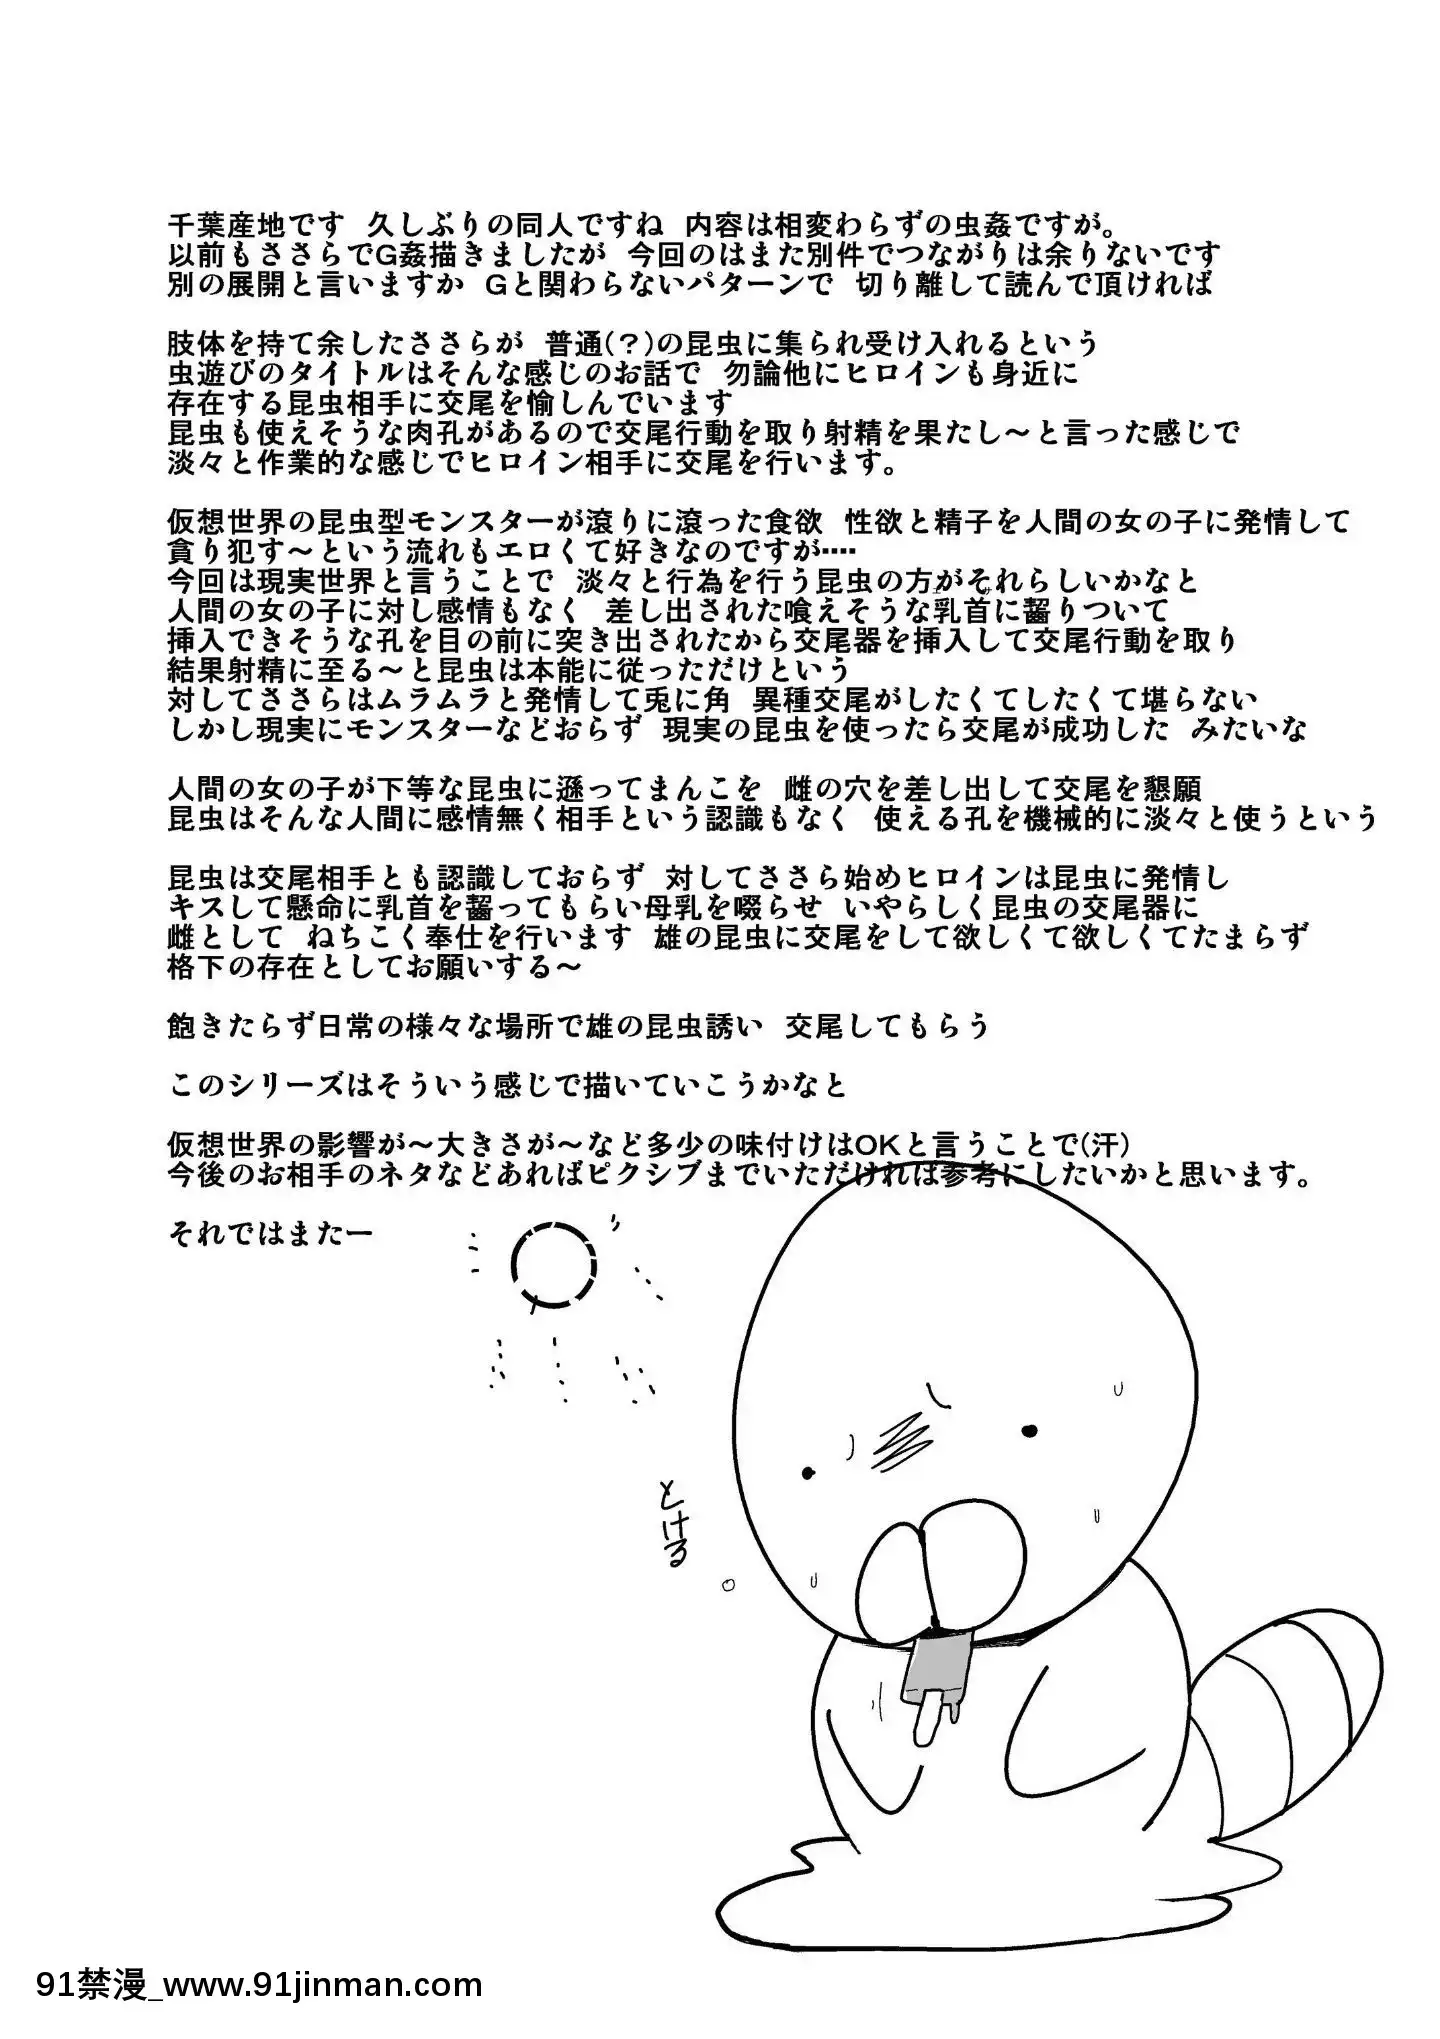 千葉産地です 久しぶりの同人ですね 内容は相変わらずの虫姦ですが。
以前もささらでG姦描きましたが 今回のはまた別件でつながりは余りないです
別の展開と言いますか Gと関わらないパターンで 切り離して読んで頂ければ
肢体を持て余したささらが 普通(？)の昆虫に集られ受け入れるという
虫遊びのタイトルはそんな感じのお話で 勿論他にヒロインも身近に
存在する昆虫相手に交尾を愉しんでいます
昆虫も使えそうな肉孔があるので交尾行動を取り射精を果たし～と言った感じで
淡々と作業的な感じでヒロイン相手に交尾を行います。
仮想世界の昆虫型モンスターが滾りに滾った食欲 性欲と精子を人間の女の子に発情して
貪り犯す～という流れもエロくて好きなのですが‥‥
今回は現実世界と言うことで 淡々と行為を行う昆虫の方がそれらしいかなと
人間の女の子に対し感情もなく 差し出された喰えそうな乳首に齧りついて
挿入できそうな孔を目の前に突き出されたから交尾器を挿入して交尾行動を取り
結果射精に至る～と昆虫は本能に従っただけという
対してささらはムラムラと発情して兎に角 異種交尾がしたくてしたくて堪らない
しかし現実にモンスターなどおらず 現実の昆虫を使ったら交尾が成功した みたいな
人間の女の子が下等な昆虫に遜ってまんこを 雌の穴を差し出して交尾を懇願
昆虫はそんな人間に感情無く相手という認識もなく 使える孔を機械的に淡々と使うという
昆虫は交尾相手とも認識しておらず 対してささら始めヒロインは昆虫に発情し
キスして懸命に乳首を齧ってもらい母乳を啜らせ いやらしく昆虫の交尾器に
雌として ねちこく奉仕を行います 雄の昆虫に交尾をして欲しくて欲しくてたまらず
格下の存在としてお願いする～
飽きたらず日常の様々な場所で雄の昆虫誘い 交尾してもらう
このシリーズはそういう感じで描いていこうかなと
仮想世界の影響が～大きさが～など多少の味付けはOKと言うことで(汗)
今後のお相手のネタなどあればピクシブまでいただければ参考にしたいかと思います。
それではまたー
とける
91禁漫_www.91jinman.com